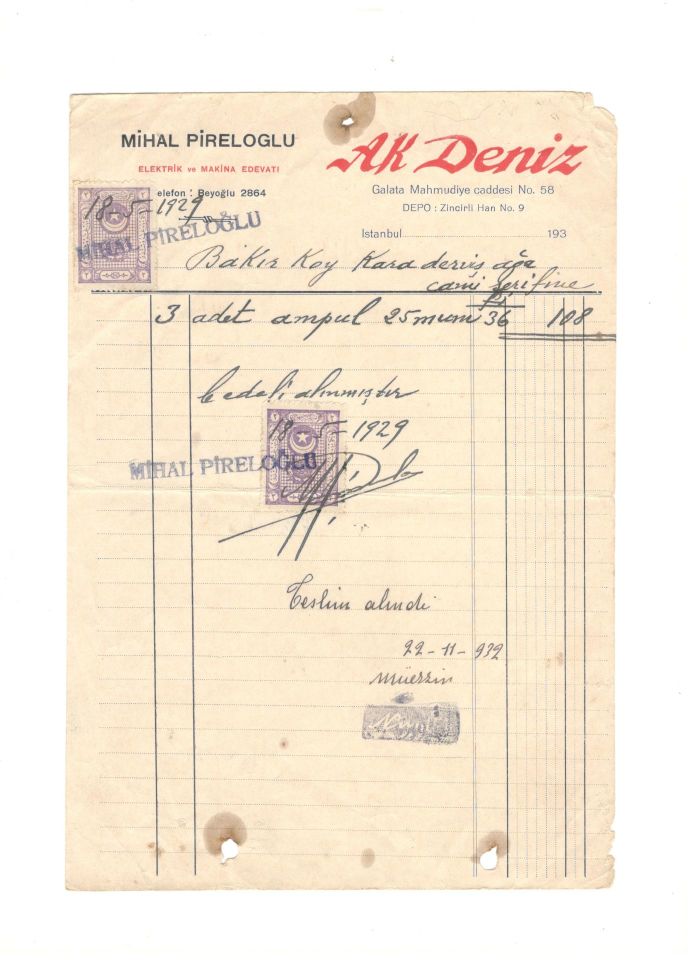 MİHAL PIRELOGLU
AK Deniz
ELEKTRİK ve MAKİNA EDEVATI
Galata Mahmudiye caddesi No. 58
elefon : Beyoğlu 2864
DEPO : Zincirli Han No. 9
18-5-1929
MİHAL PİRELOĞLU
Istanbul 193
Bakır Koy Kara derviş ağa
cami şerifine
3 adet ampul 25 mum 36 108
bedeli alınmıştır
18-5-1929
MİHAL PİRELOĞLU
Teslim alındı
22-11-932
müezzin